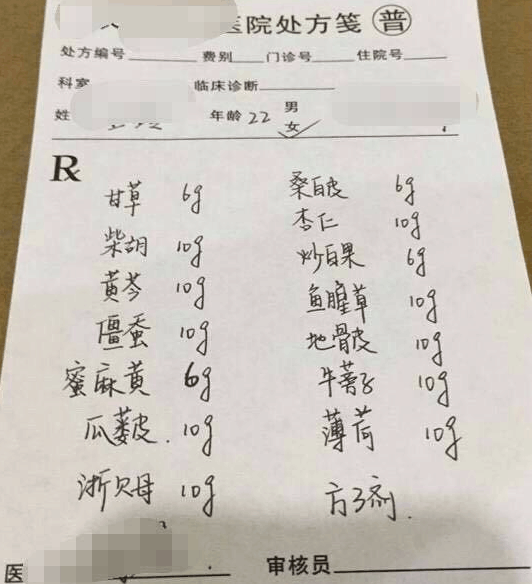 医院处方笺 普
处方编号 费别 门诊号 住院号
科室 临床诊断
姓 年龄 22 男 女
℞
甘草 6g 桑白皮 6g
柴胡 10g 杏仁 10g
黄芩 10g 炒白果 6g
僵蚕 10g 鱼腥草 10g
蜜麻黄 6g 地骨皮 10g
瓜蒌皮 10g 牛蒡子 10g
浙贝母 10g 薄荷 10g
方3剂.
医 审核员